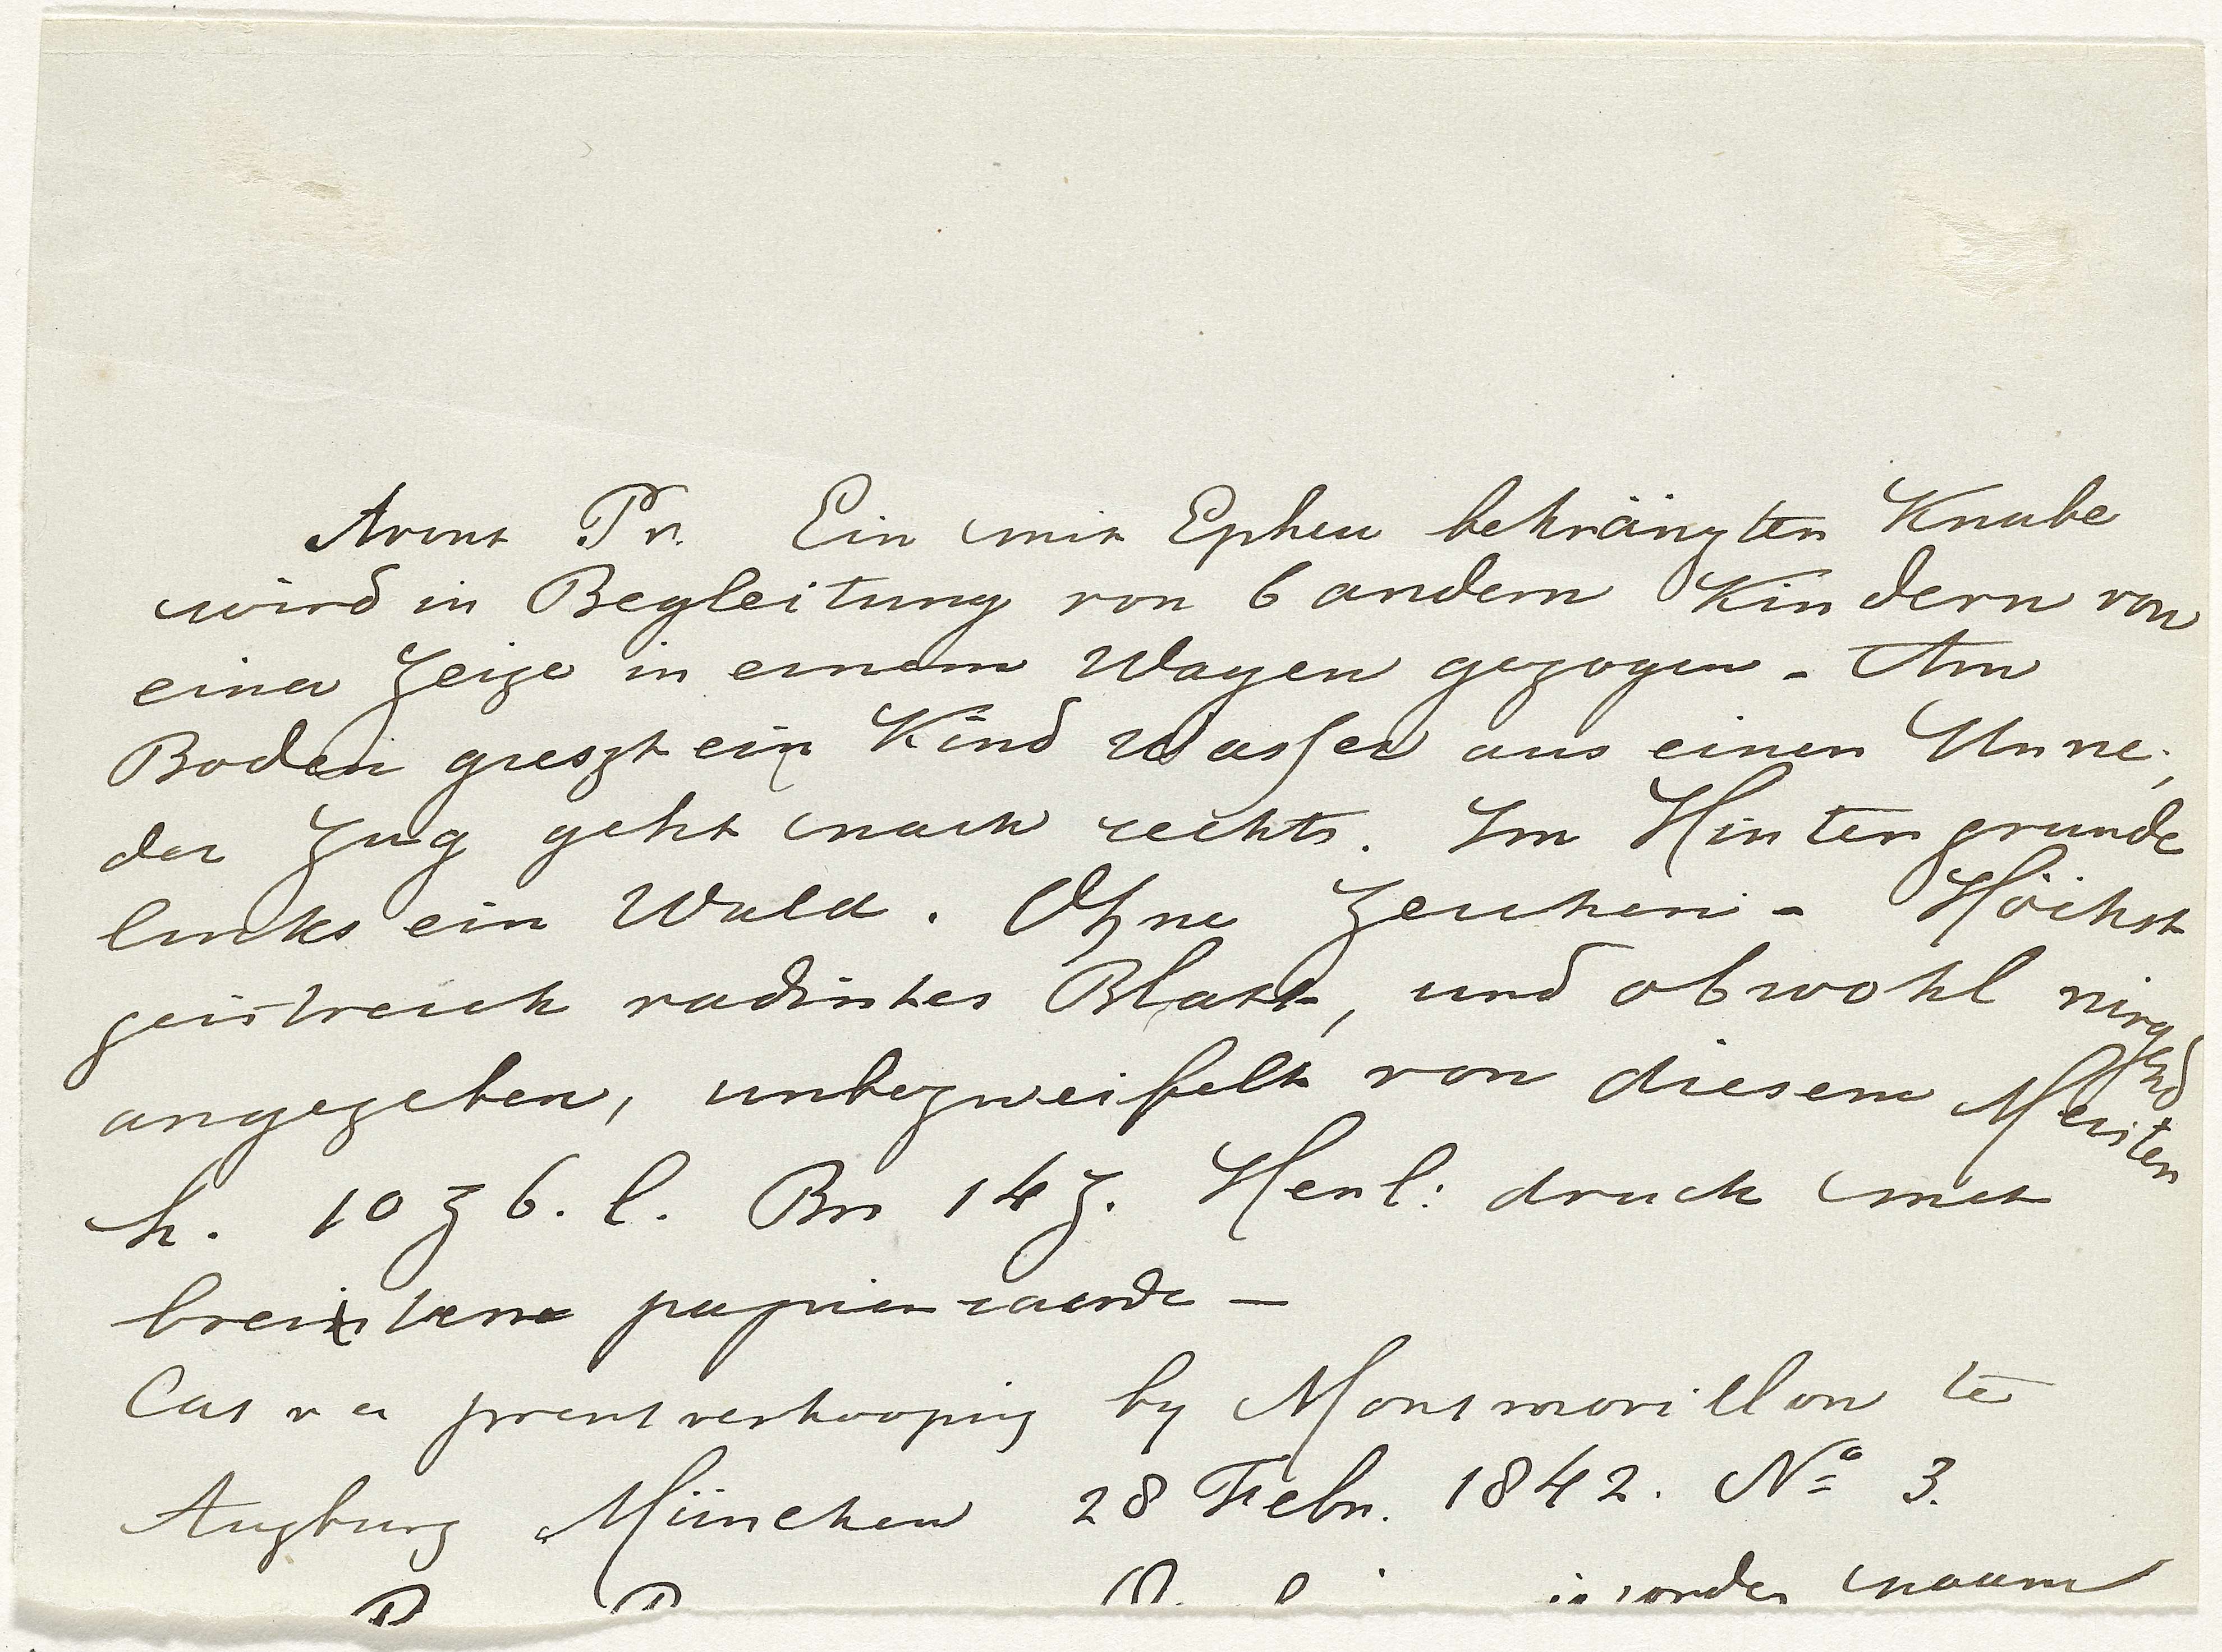 Avant Pr. Ein mit Epheu bekränzter Knabe
wird in Begleitung von 6 andern Kindern von
einer Zeige in einem Wagen gezogen - Am
Boden gieszt ein Kind Wasser aus einer Urne;
der Zug geht nach rechts. Im Hintergrunde
links ein Wald. Ohne Zeichen - Höchst
geistreich radirtes Blatt, und obwohl nirgend
angegeben, unbezweifelt von diesem Meister
h. 10 z 6. l. Br 14 z. Herl: druck met
breiten papierrande -
Cat v a prentverkooping by Montmorillon te
Augburg München 28 Febr. 1842. No 3.
naam